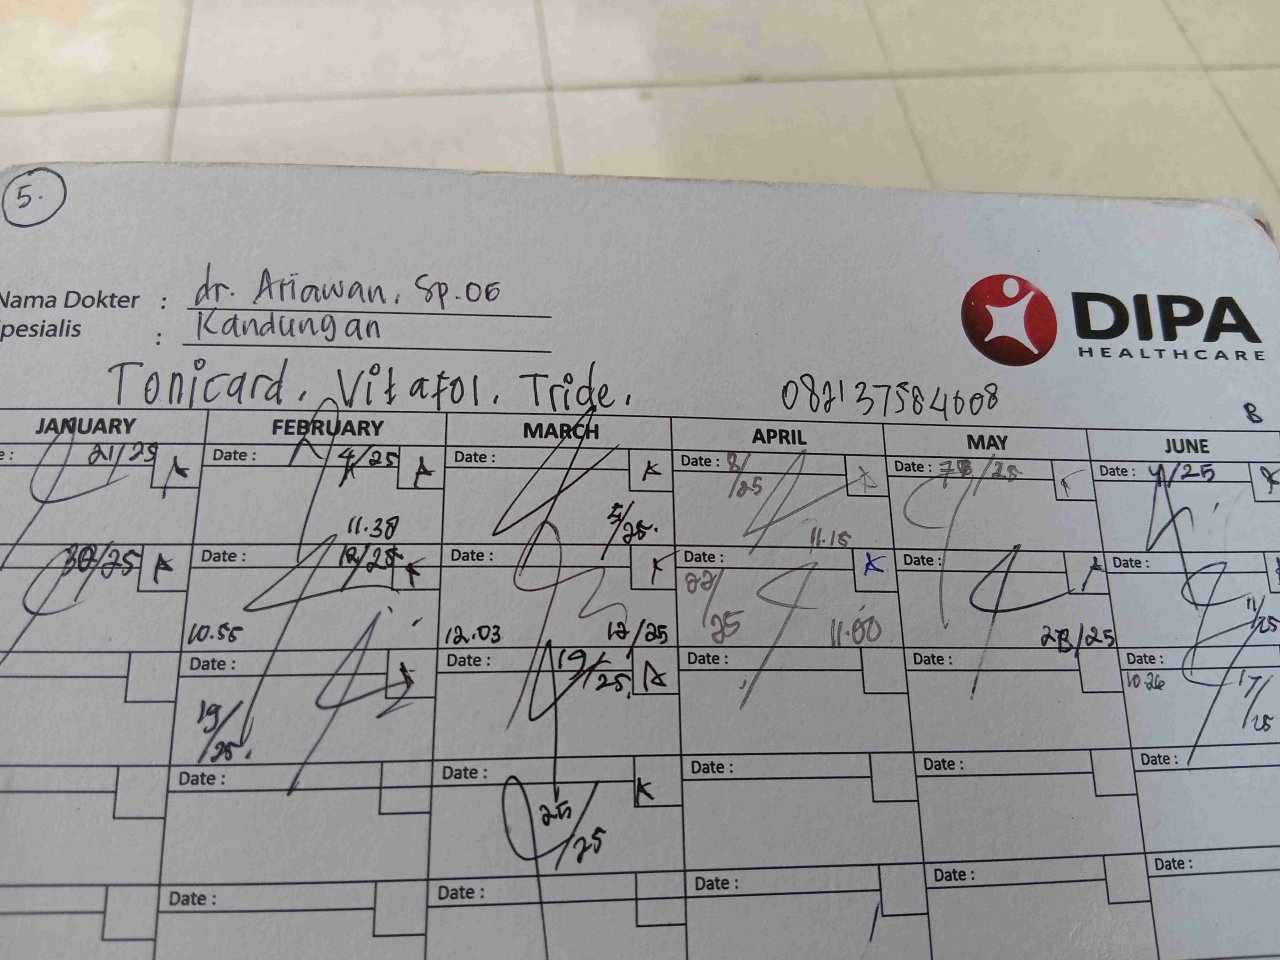 5.
Nama Dokter : dr. Ariawan, Sp.OG
pesialis : Kandungan
DIPA
HEALTHCARE
Tonicard. Vitafol. Tride. 082137584608
B
JANUARY FEBRUARY MARCH APRIL MAY JUNE
21/25 A Date : 4/25 A Date : A Date : 8/25 Date : /25 Date : 4/25
11.38 5/25. 11.15
30/25 A Date : 12/25 Date : Date : 22/25 A Date : A Date :
10.55 12.03 12/25 11.00 28/25 11/25
Date : 19/25. Date : 19/25 A Date : Date : Date : 10.26 17/25
Date : Date : 25/25 Date : Date : Date :
Date : Date : Date : Date : Date :